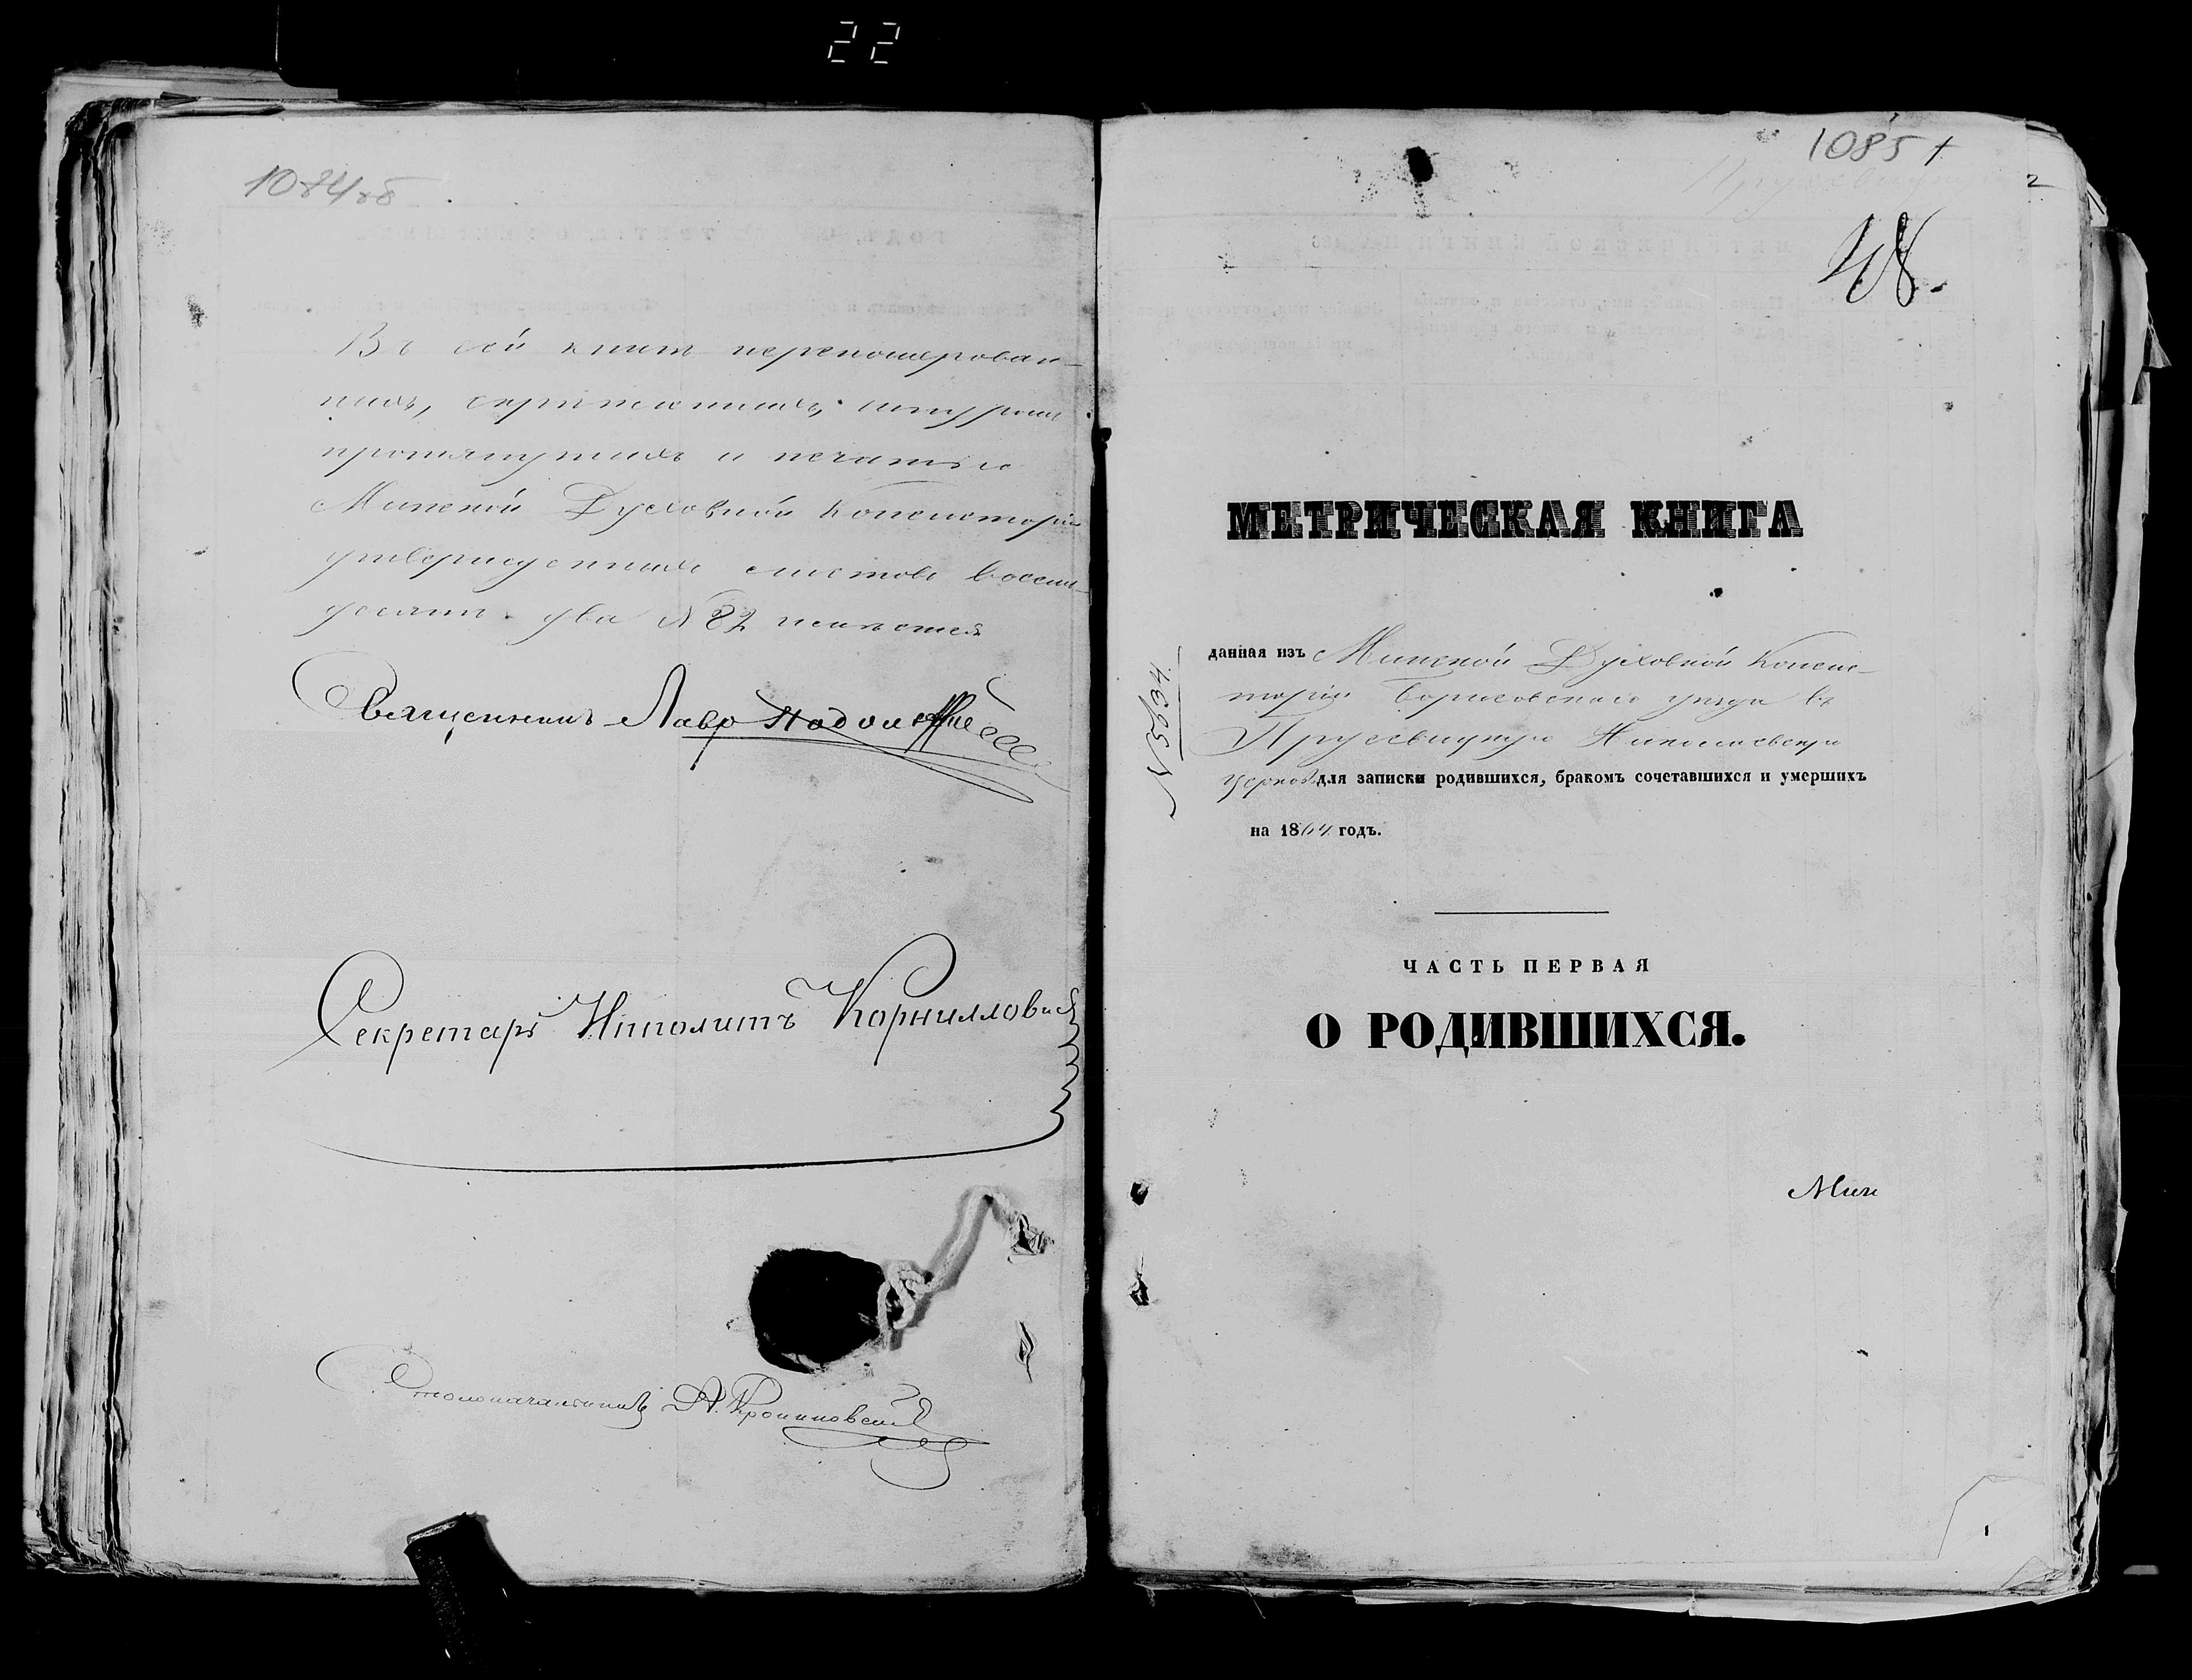 22
1084об
Въ сей книгѣ перенумерован-
ныхъ, скрѣпленныхъ, шнуромъ
протянутыхъ и печатью
Минской Духовной Консисторіи
утвержденныхъ листовъ восемь-
десятъ два № 82 имѣется
Священникъ Лавр
Секретарь Ипполитъ Корнилловичъ
Столоначальникъ А.
1085 +
2
48.
МЕТРИЧЕСКАЯ КНИГА
№ 5534.
данная изъ Минской Духовной Консис-
торіи Борисовскаго уѣзда въ
Прусевицкую Николаевскую
церковь для записки родившихся, бракомъ сочетавшихся и умершихъ
на 1864 годъ.
ЧАСТЬ ПЕРВАЯ
О РОДИВШИХСЯ.
Мин
1